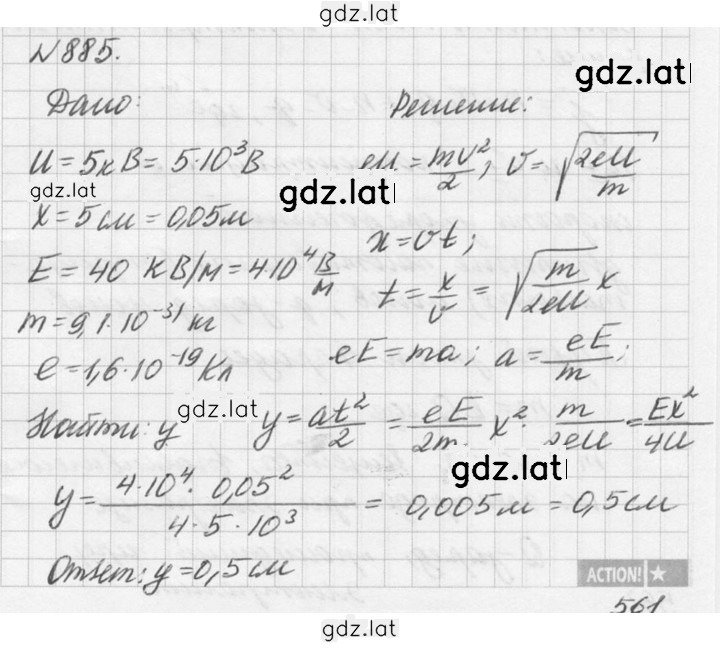 gdz.lat
№885.
gdz.lat
Дано:
Решение:
U = 5кВ = 5·10³В
eU = mv²/2; v = √(2eU/m)
gdz.lat
gdz.lat
x = 5см = 0,05м
x = vt;
E = 40 кВ/м = 4·10⁴ В/м
t = x/v = √(m/2eU) x
m = 9,1·10⁻³¹ кг
eE = ma; a = eE/m;
e = 1,6·10⁻¹⁹ Кл
gdz.lat
Найти: y
y = at²/2 = eE/2m · x² · m/2eU = Ex²/4U
gdz.lat
y = 4·10⁴ · 0,05² / 4·5·10³ = 0,005м = 0,5см
Ответ: y = 0,5см
ACTION! ★
561
gdz.lat